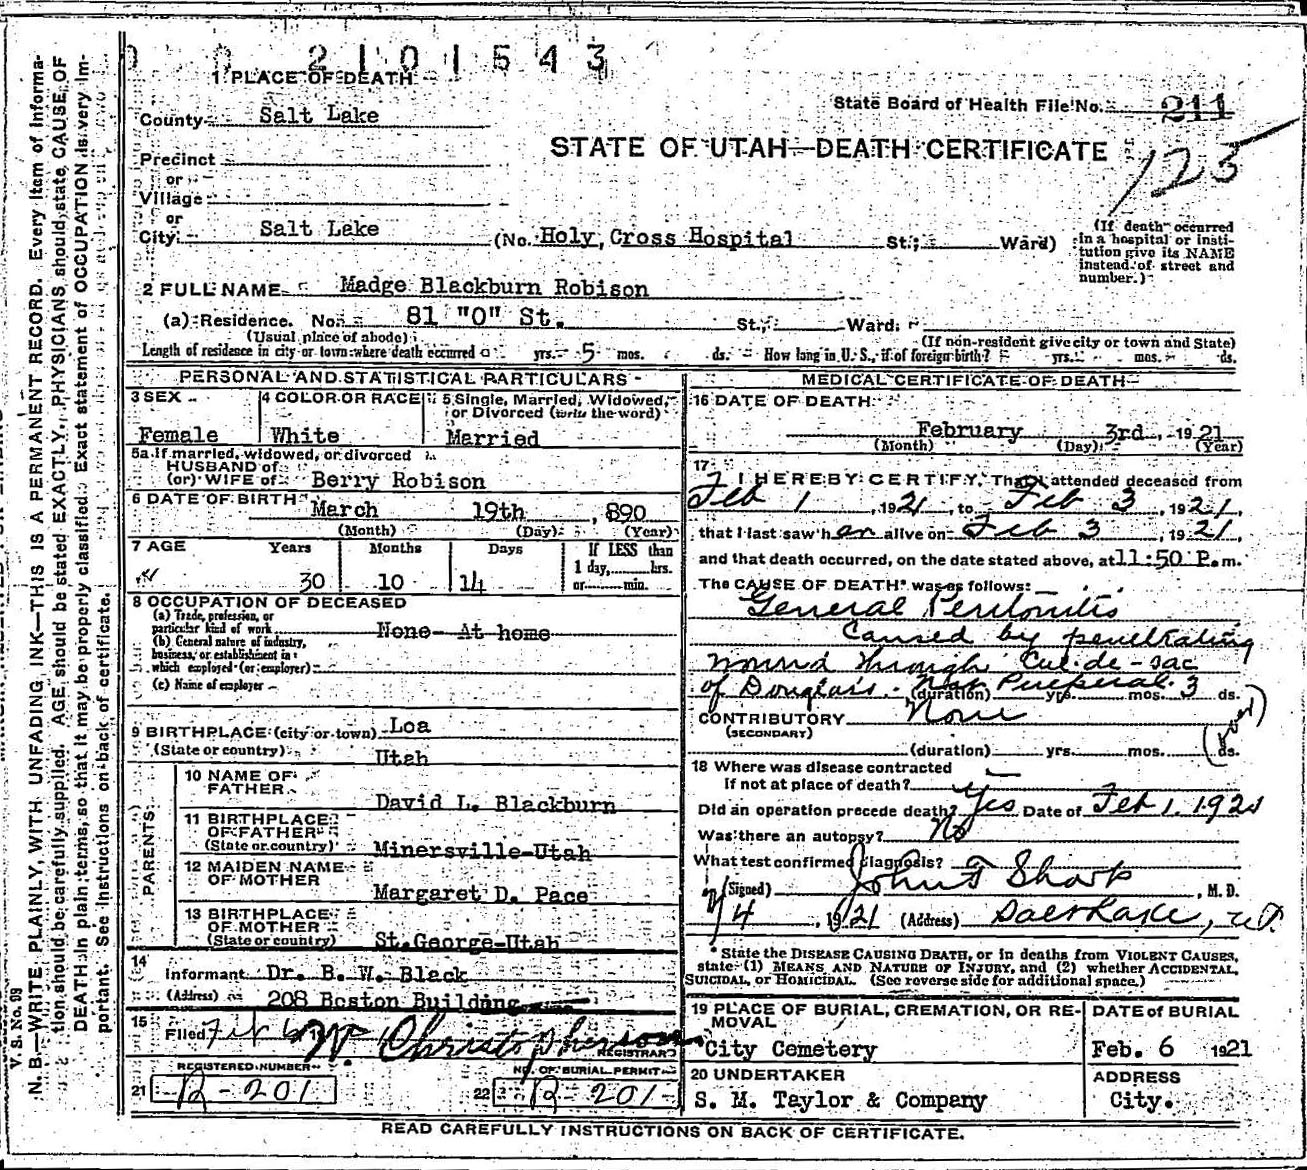 2101543
1 PLACE OF DEATH
County Salt Lake
State Board of Health File No. 211
STATE OF UTAH—DEATH CERTIFICATE
125
Precinct
or
Village
or
City Salt Lake (No. Holy Cross Hospital St.; Ward)
(If death occurred in a hospital or insti-
tution give its NAME
instead of street and
number.)
2 FULL NAME Madge Blackburn Robison
(a) Residence. No. 81 "O" St. St., Ward.
(Usual place of abode) (If non-resident give city or town and State)
Length of residence in city or town where death occurred yrs. 5 mos. ds. How long in U. S., if of foreign birth? yrs. mos. ds.
PERSONAL AND STATISTICAL PARTICULARS
3 SEX 4 COLOR OR RACE 5 Single, Married, Widowed,
or Divorced (write the word)
Female White Married
5a If married, widowed, or divorced
HUSBAND of
(or) WIFE of Berry Robison
6 DATE OF BIRTH
March 19th , 890
(Month) (Day) (Year)
7 AGE Years Months Days If LESS than
1 day, hrs.
30 10 14 or min.
8 OCCUPATION OF DECEASED
(a) Trade, profession, or
particular kind of work None- At home
(b) General nature of industry,
business, or establishment in
which employed (or employer)
(c) Name of employer
9 BIRTHPLACE (city or town) Loa
(State or country) Utah
PARENTS
10 NAME OF
FATHER David L. Blackburn
11 BIRTHPLACE
OF FATHER
(State or country) Minersville-Utah
12 MAIDEN NAME
OF MOTHER Margaret D. Pace
13 BIRTHPLACE
OF MOTHER
(State or country) St.George-Utah
14
Informant Dr. B. W. Black
(Address) 208 Boston Building
15
Filed Feb 6 19 W. Christopherson
REGISTRAR
REGISTERED NUMBER NO. OF BURIAL PERMIT
21 R-201 22 R-201
MEDICAL CERTIFICATE OF DEATH
16 DATE OF DEATH
February 3rd , 1921
(Month) (Day) (Year)
17
I HEREBY CERTIFY, That I attended deceased from
Feb 1 , 1921, to Feb 3 , 1921,
that I last saw her alive on Feb 3 , 1921,
and that death occurred, on the date stated above, at 11:50 P. m.
The CAUSE OF DEATH* was as follows:
General Peritonitis
Caused by penetrating
wound through Cul-de-sac
of Douglas. Not Puerperal.
(duration) yrs. mos. 3 ds.
CONTRIBUTORY None
(SECONDARY)
(duration) yrs. mos. ds.
18 Where was disease contracted
If not at place of death?
Did an operation precede death? Yes Date of Feb 1. 1921
Was there an autopsy? No
What test confirmed diagnosis?
(Signed) John F Sharp , M. D.
2/4 , 1921 (Address) Salt Lake, Ut.
* State the DISEASE CAUSING DEATH, or in deaths from VIOLENT CAUSES,
state (1) MEANS AND NATURE OF INJURY, and (2) whether ACCIDENTAL,
SUICIDAL, or HOMICIDAL. (See reverse side for additional space.)
19 PLACE OF BURIAL, CREMATION, OR RE-
MOVAL
City Cemetery
DATE of BURIAL
Feb. 6 1921
20 UNDERTAKER
S. M. Taylor & Company
ADDRESS
City.
READ CAREFULLY INSTRUCTIONS ON BACK OF CERTIFICATE.
V. S. No. 99
N. B.—WRITE PLAINLY, WITH UNFADING INK—THIS IS A PERMANENT RECORD. Every item of informa-
tion should be carefully supplied. AGE should be stated EXACTLY. PHYSICIANS should state CAUSE OF
DEATH in plain terms, so that it may be properly classified. Exact statement of OCCUPATION is very im-
portant. See instructions on back of certificate.